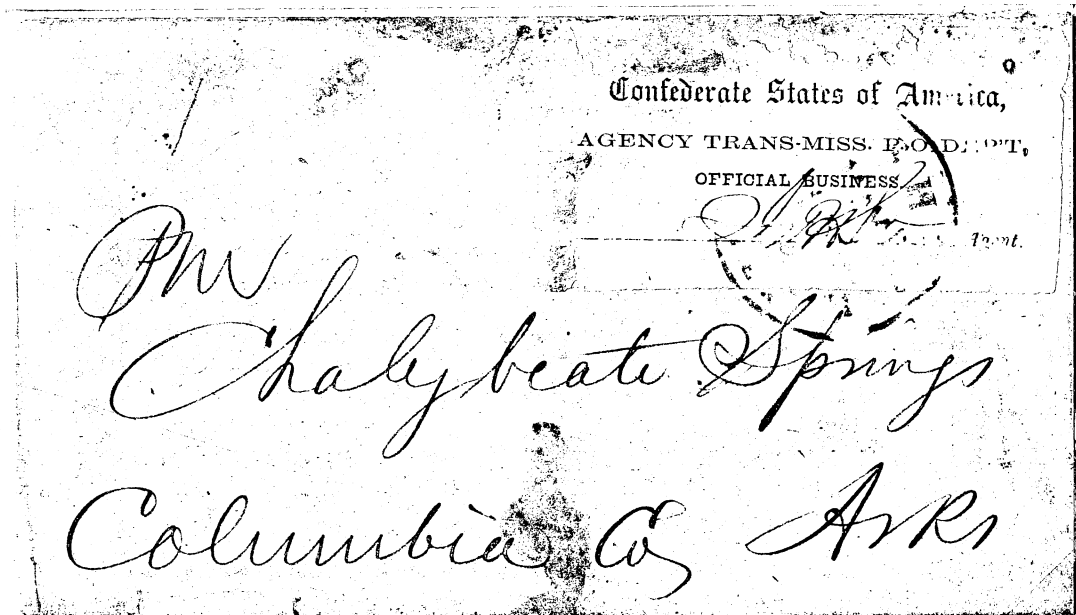 Confederate States of America,
AGENCY TRANS-MISS. P. O. DEP'T,
OFFICIAL BUSINESS
Agent.
PM
Chalybeate Springs
Columbia Co
Arks